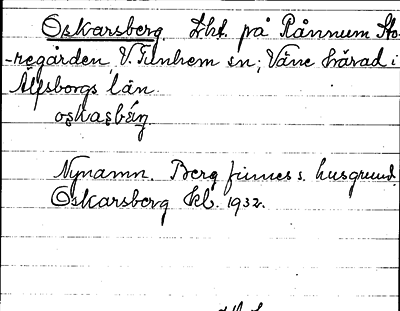 Oskarsberg Lht. på Rånnum Sto-
-regården, V. Tunhem sn; Väne härad i
Älfsborgs län.
oskasbärj
Nynamn. Berg finnes s. husgrund.
Oskarsberg kl. 1932.